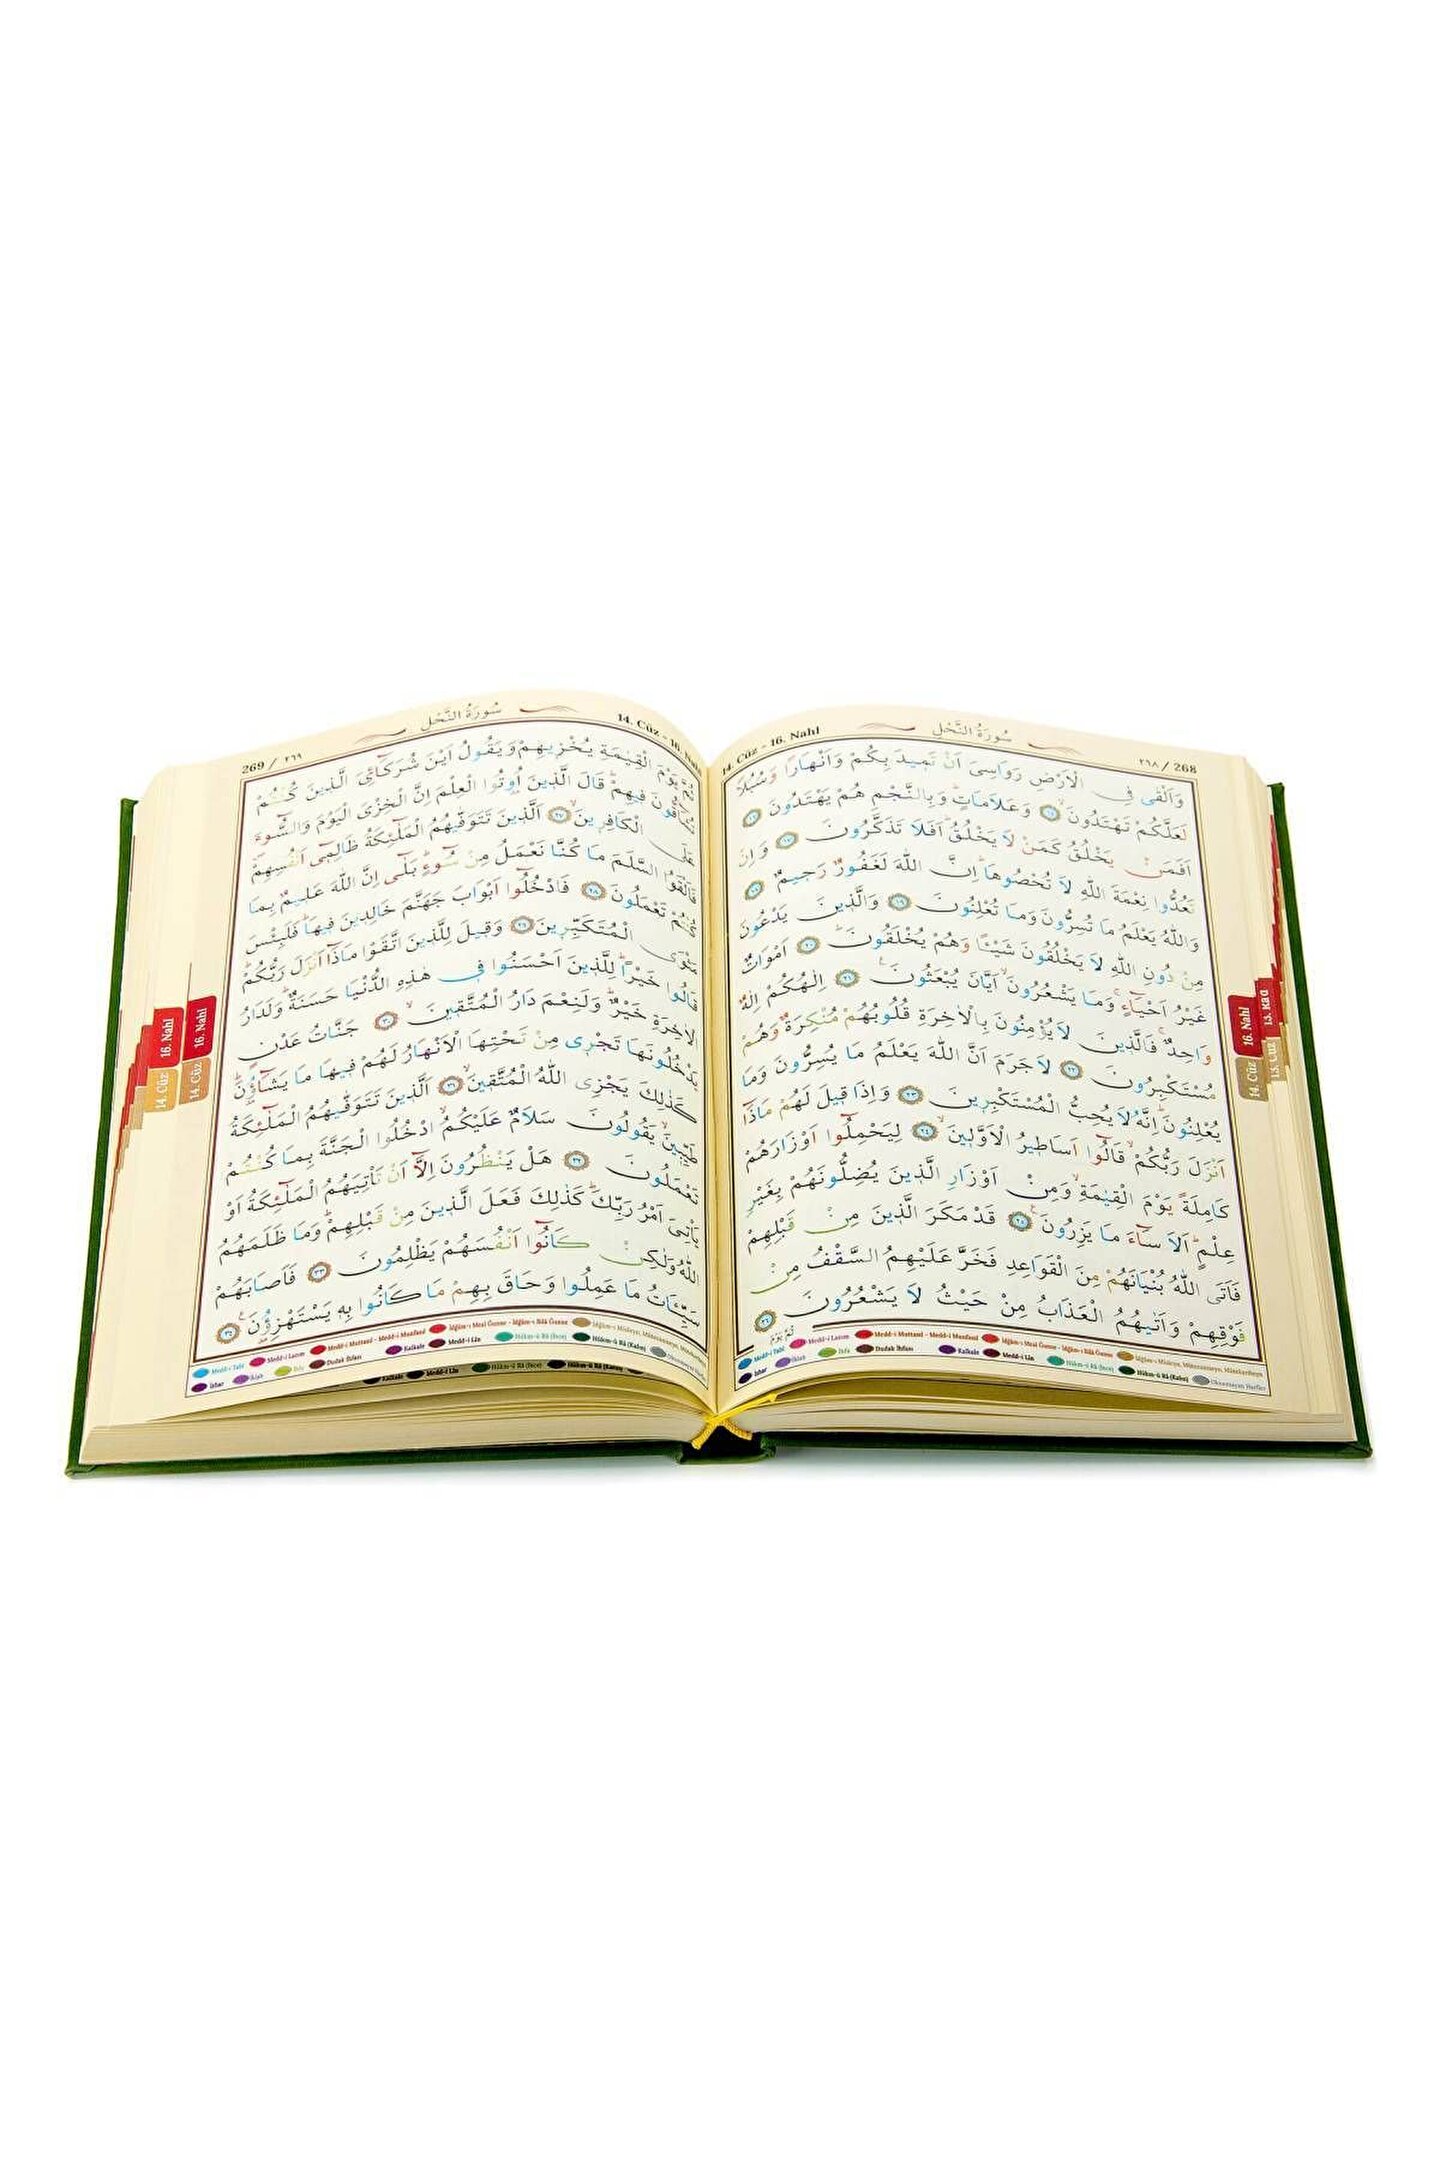 ٢٦٨ / 268
سُورَةُ النَّحْلِ
14. Cüz - 16. Nahl
وَاَلْقٰى فِى الْاَرْضِ رَوَاسِىَ اَنْ تَمِيدَ بِكُمْ وَاَنْهَارًا وَسُبُلًا
لَعَلَّكُمْ تَهْتَدُونَ ﴿١٥﴾ وَعَلَامَاتٍ وَبِالنَّجْمِ هُمْ يَهْتَدُونَ ﴿١٦﴾
اَفَمَنْ يَخْلُقُ كَمَنْ لَا يَخْلُقُ اَفَلَا تَذَكَّرُونَ ﴿١٧﴾ وَاِنْ
تَعُدُّوا نِعْمَةَ اللّٰهِ لَا تُحْصُوهَا اِنَّ اللّٰهَ لَغَفُورٌ رَحِيمٌ ﴿١٨﴾
وَاللّٰهُ يَعْلَمُ مَا تُسِرُّونَ وَمَا تُعْلِنُونَ ﴿١٩﴾ وَالَّذِينَ يَدْعُونَ
مِنْ دُونِ اللّٰهِ لَا يَخْلُقُونَ شَيْئًا وَهُمْ يُخْلَقُونَ ﴿٢٠﴾ اَمْوَاتٌ
غَيْرُ اَحْيَاءٍ وَمَا يَشْعُرُونَ اَيَّانَ يُبْعَثُونَ ﴿٢١﴾ اِلٰهُكُمْ اِلٰهٌ
وَاحِدٌ فَالَّذِينَ لَا يُؤْمِنُونَ بِالْاٰخِرَةِ قُلُوبُهُمْ مُنْكِرَةٌ وَهُمْ
مُسْتَكْبِرُونَ ﴿٢٢﴾ لَا جَرَمَ اَنَّ اللّٰهَ يَعْلَمُ مَا يُسِرُّونَ وَمَا
يُعْلِنُونَ اِنَّهُ لَا يُحِبُّ الْمُسْتَكْبِرِينَ ﴿٢٣﴾ وَاِذَا قِيلَ لَهُمْ مَاذَا
اَنْزَلَ رَبُّكُمْ قَالُوا اَسَاطِيرُ الْاَوَّلِينَ ﴿٢٤﴾ لِيَحْمِلُوا اَوْزَارَهُمْ
كَامِلَةً يَوْمَ الْقِيٰمَةِ وَمِنْ اَوْزَارِ الَّذِينَ يُضِلُّونَهُمْ بِغَيْرِ
عِلْمٍ اَلَا سَاءَ مَا يَزِرُونَ ﴿٢٥﴾ قَدْ مَكَرَ الَّذِينَ مِنْ قَبْلِهِمْ
فَاَتَى اللّٰهُ بُنْيَانَهُمْ مِنَ الْقَوَاعِدِ فَخَرَّ عَلَيْهِمُ السَّقْفُ مِنْ
فَوْقِهِمْ وَاَتٰيهُمُ الْعَذَابُ مِنْ حَيْثُ لَا يَشْعُرُونَ ﴿٢٦﴾
ثُمَّ يَوْمَ
Medd-i Tabî Medd-i Lazım Medd-i Muttasıl - Medd-i Munfasıl İdğâm-ı Meal Ğunne - İdğâm-ı Bilâ Ğunne İdğâm-ı Misleyn, Mütecaniseyn, Mütekaribeyn
İzhar İklab İhfa Dudak İhfası Kalkale Medd-i Lîn Hükm-ü Râ (İnce) Hükm-ü Râ (Kalın) Okunmayan Harfler
16. Nahl
14. Cüz
13. Rad
13. Cüz
269 / ٢٦٩
سُورَةُ النَّحْلِ
14. Cüz - 16. Nahl
يَوْمَ الْقِيٰمَةِ يُخْزِيهِمْ وَيَقُولُ اَيْنَ شُرَكَائِىَ الَّذِينَ كُنْتُمْ
تُشَاقُّونَ فِيهِمْ قَالَ الَّذِينَ اُوتُوا الْعِلْمَ اِنَّ الْخِزْىَ الْيَوْمَ وَالسُّوءَ
عَلَى الْكَافِرِينَ ﴿٢٧﴾ اَلَّذِينَ تَتَوَفّٰيهُمُ الْمَلٰئِكَةُ ظَالِمِى اَنْفُسِهِمْ
فَاَلْقَوُا السَّلَمَ مَا كُنَّا نَعْمَلُ مِنْ سُوءٍ بَلٰى اِنَّ اللّٰهَ عَلِيمٌ بِمَا
كُنْتُمْ تَعْمَلُونَ ﴿٢٨﴾ فَادْخُلُوا اَبْوَابَ جَهَنَّمَ خَالِدِينَ فِيهَا فَلَبِئْسَ
مَثْوَى الْمُتَكَبِّرِينَ ﴿٢٩﴾ وَقِيلَ لِلَّذِينَ اتَّقَوْا مَاذَا اَنْزَلَ رَبُّكُمْ
قَالُوا خَيْرًا لِلَّذِينَ اَحْسَنُوا فِى هٰذِهِ الدُّنْيَا حَسَنَةٌ وَلَدَارُ
الْاٰخِرَةِ خَيْرٌ وَلَنِعْمَ دَارُ الْمُتَّقِينَ ﴿٣٠﴾ جَنَّاتُ عَدْنٍ
يَدْخُلُونَهَا تَجْرِى مِنْ تَحْتِهَا الْاَنْهَارُ لَهُمْ فِيهَا مَا يَشَاؤُنَ
كَذٰلِكَ يَجْزِى اللّٰهُ الْمُتَّقِينَ ﴿٣١﴾ اَلَّذِينَ تَتَوَفّٰيهُمُ الْمَلٰئِكَةُ
طَيِّبِينَ يَقُولُونَ سَلَامٌ عَلَيْكُمُ ادْخُلُوا الْجَنَّةَ بِمَا كُنْتُمْ
تَعْمَلُونَ ﴿٣٢﴾ هَلْ يَنْظُرُونَ اِلَّا اَنْ تَأْتِيَهُمُ الْمَلٰئِكَةُ اَوْ
يَأْتِىَ اَمْرُ رَبِّكَ كَذٰلِكَ فَعَلَ الَّذِينَ مِنْ قَبْلِهِمْ وَمَا ظَلَمَهُمُ
اللّٰهُ وَلٰكِنْ كَانُوا اَنْفُسَهُمْ يَظْلِمُونَ ﴿٣٣﴾ فَاَصَابَهُمْ
سَيِّئَاتُ مَا عَمِلُوا وَحَاقَ بِهِمْ مَا كَانُوا بِهِ يَسْتَهْزِؤُنَ ﴿٣٤﴾
Medd-i Tabî Medd-i Lazım Medd-i Muttasıl - Medd-i Munfasıl İdğâm-ı Meal Ğunne - İdğâm-ı Bilâ Ğunne İdğâm-ı Misleyn, Mütecaniseyn, Mütekaribeyn
İzhar İklab İhfa Dudak İhfası Kalkale Medd-i Lîn Hükm-ü Râ (İnce) Hükm-ü Râ (Kalın) Okunmayan Harfler
Kalkale Medd-i Lîn Hükm-ü Râ (İnce) Hükm-ü Râ (Kalın)
16. Nahl
14. Cüz
16. Nahl
14. Cüz